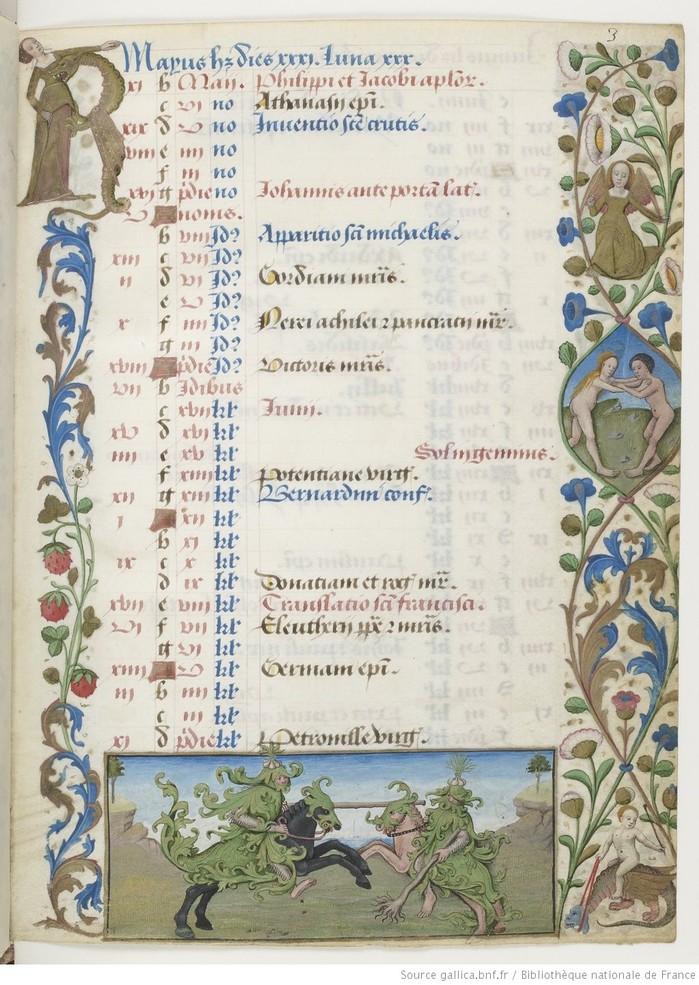 3
Mayus hz dies xxxi. Luna xxx.
xi b Maii. Philippi et Jacobi aplor.
c vi no Athanasii epi.
xix d v no Inventio scte crucis.
viii e iiii no
f iii no
xvi g pdie no Johannis ante portā lat.
v nonis.
b viii Id9 Apparitio scī michaelis.
xiii c vii Id9
ii d vi Id9 Gordiani mris.
e v Id9
x f iiii Id9 Nerei achilei z pancratii mr.
g iii Id9
xviii pdie Id9 Victoris mris.
vii b Idibus
c xvii kl Junii.
xv d xvi kl
iiii e xv kl Sol in geminis.
f xiiii kl Potentiane virg.
xii g xiii kl Bernardini conf.
i xii kl
b xi kl
ix c x kl
d ix kl Donatiani et rog mr.
xvii e viii kl Translatio scī francisci.
vi f vii kl Eleutherii ppe z mris.
g vi kl
xiiii v kl Germani epi.
iii b iiii kl
c iii kl
xi d pdie kl Petronille virg.
Source gallica.bnf.fr / Bibliothèque nationale de France